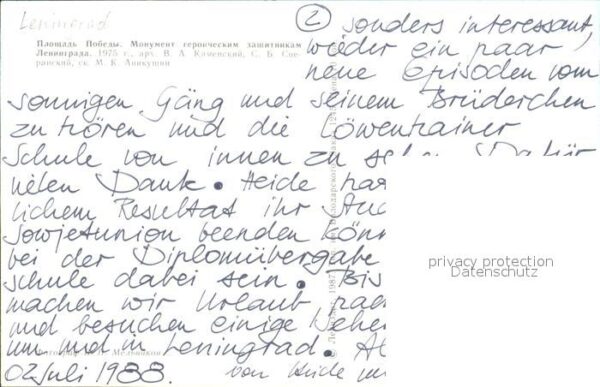 Leningrad
Площадь Победы. Монумент героическим защитникам
Ленинграда. 1975 г., арх. В. А. Каменский, С. Б. Спе-
ранский, ск. М. К. Аникушин
② sonders interessant,
wieder ein paar
neue Episoden vom
sonnigen Gäng und seinem Brüderchen
zu hören und die Löwenhainer
Schule von innen zu sehen. Dafür
vielen Dank. Heide
lichem Resultat ihr
Sowjetunion beenden
bei der Diplomübergabe
schule dabei sein. Bis
machen wir Urlaub
und besuchen einige
um und in Leningrad.
02 Juli 1988. von Heide
Мельников
privacy protection
Datenschutz